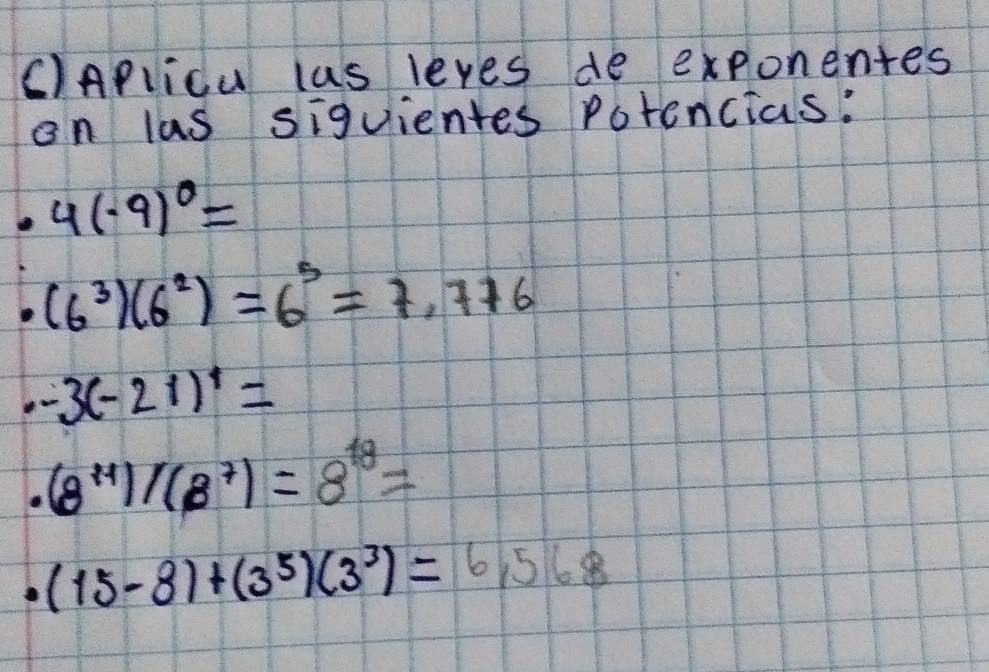 C) Aplica las leyes de exponentes
en las siguientes Potencias:
• 4(-9)⁰ =
• (6³)(6²) = 6⁵ = 7,776
• -3(-21)¹ =
• (8¹¹)/(8⁷) = 8¹⁸ =
• (15-8)+(3⁵)(3³) = 6,568